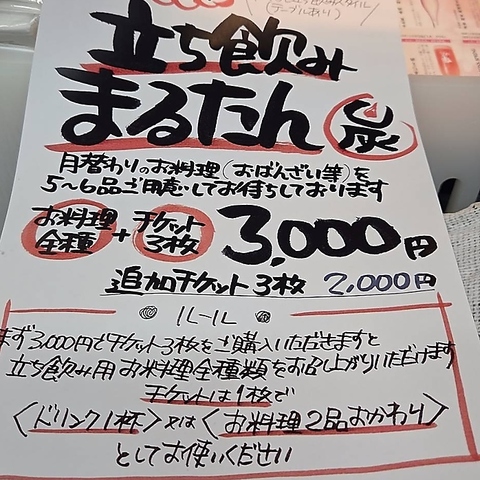 (テーブルあり)
立ち飲み
まるたん 炭
月替わりのお料理(おばんざい等)を
5〜6品ご用意してお待ちしております
お料理全種 + チケット3枚 3,000円
追加チケット3枚 2,000円
◎ ルール ◎
まず3,000円でチケット3枚をご購入いただきますと
立ち飲み用お料理全種類をお召し上がりいただけます
チケットは1枚で
〈ドリンク1杯〉又は〈お料理2品おかわり〉
としてお使いください